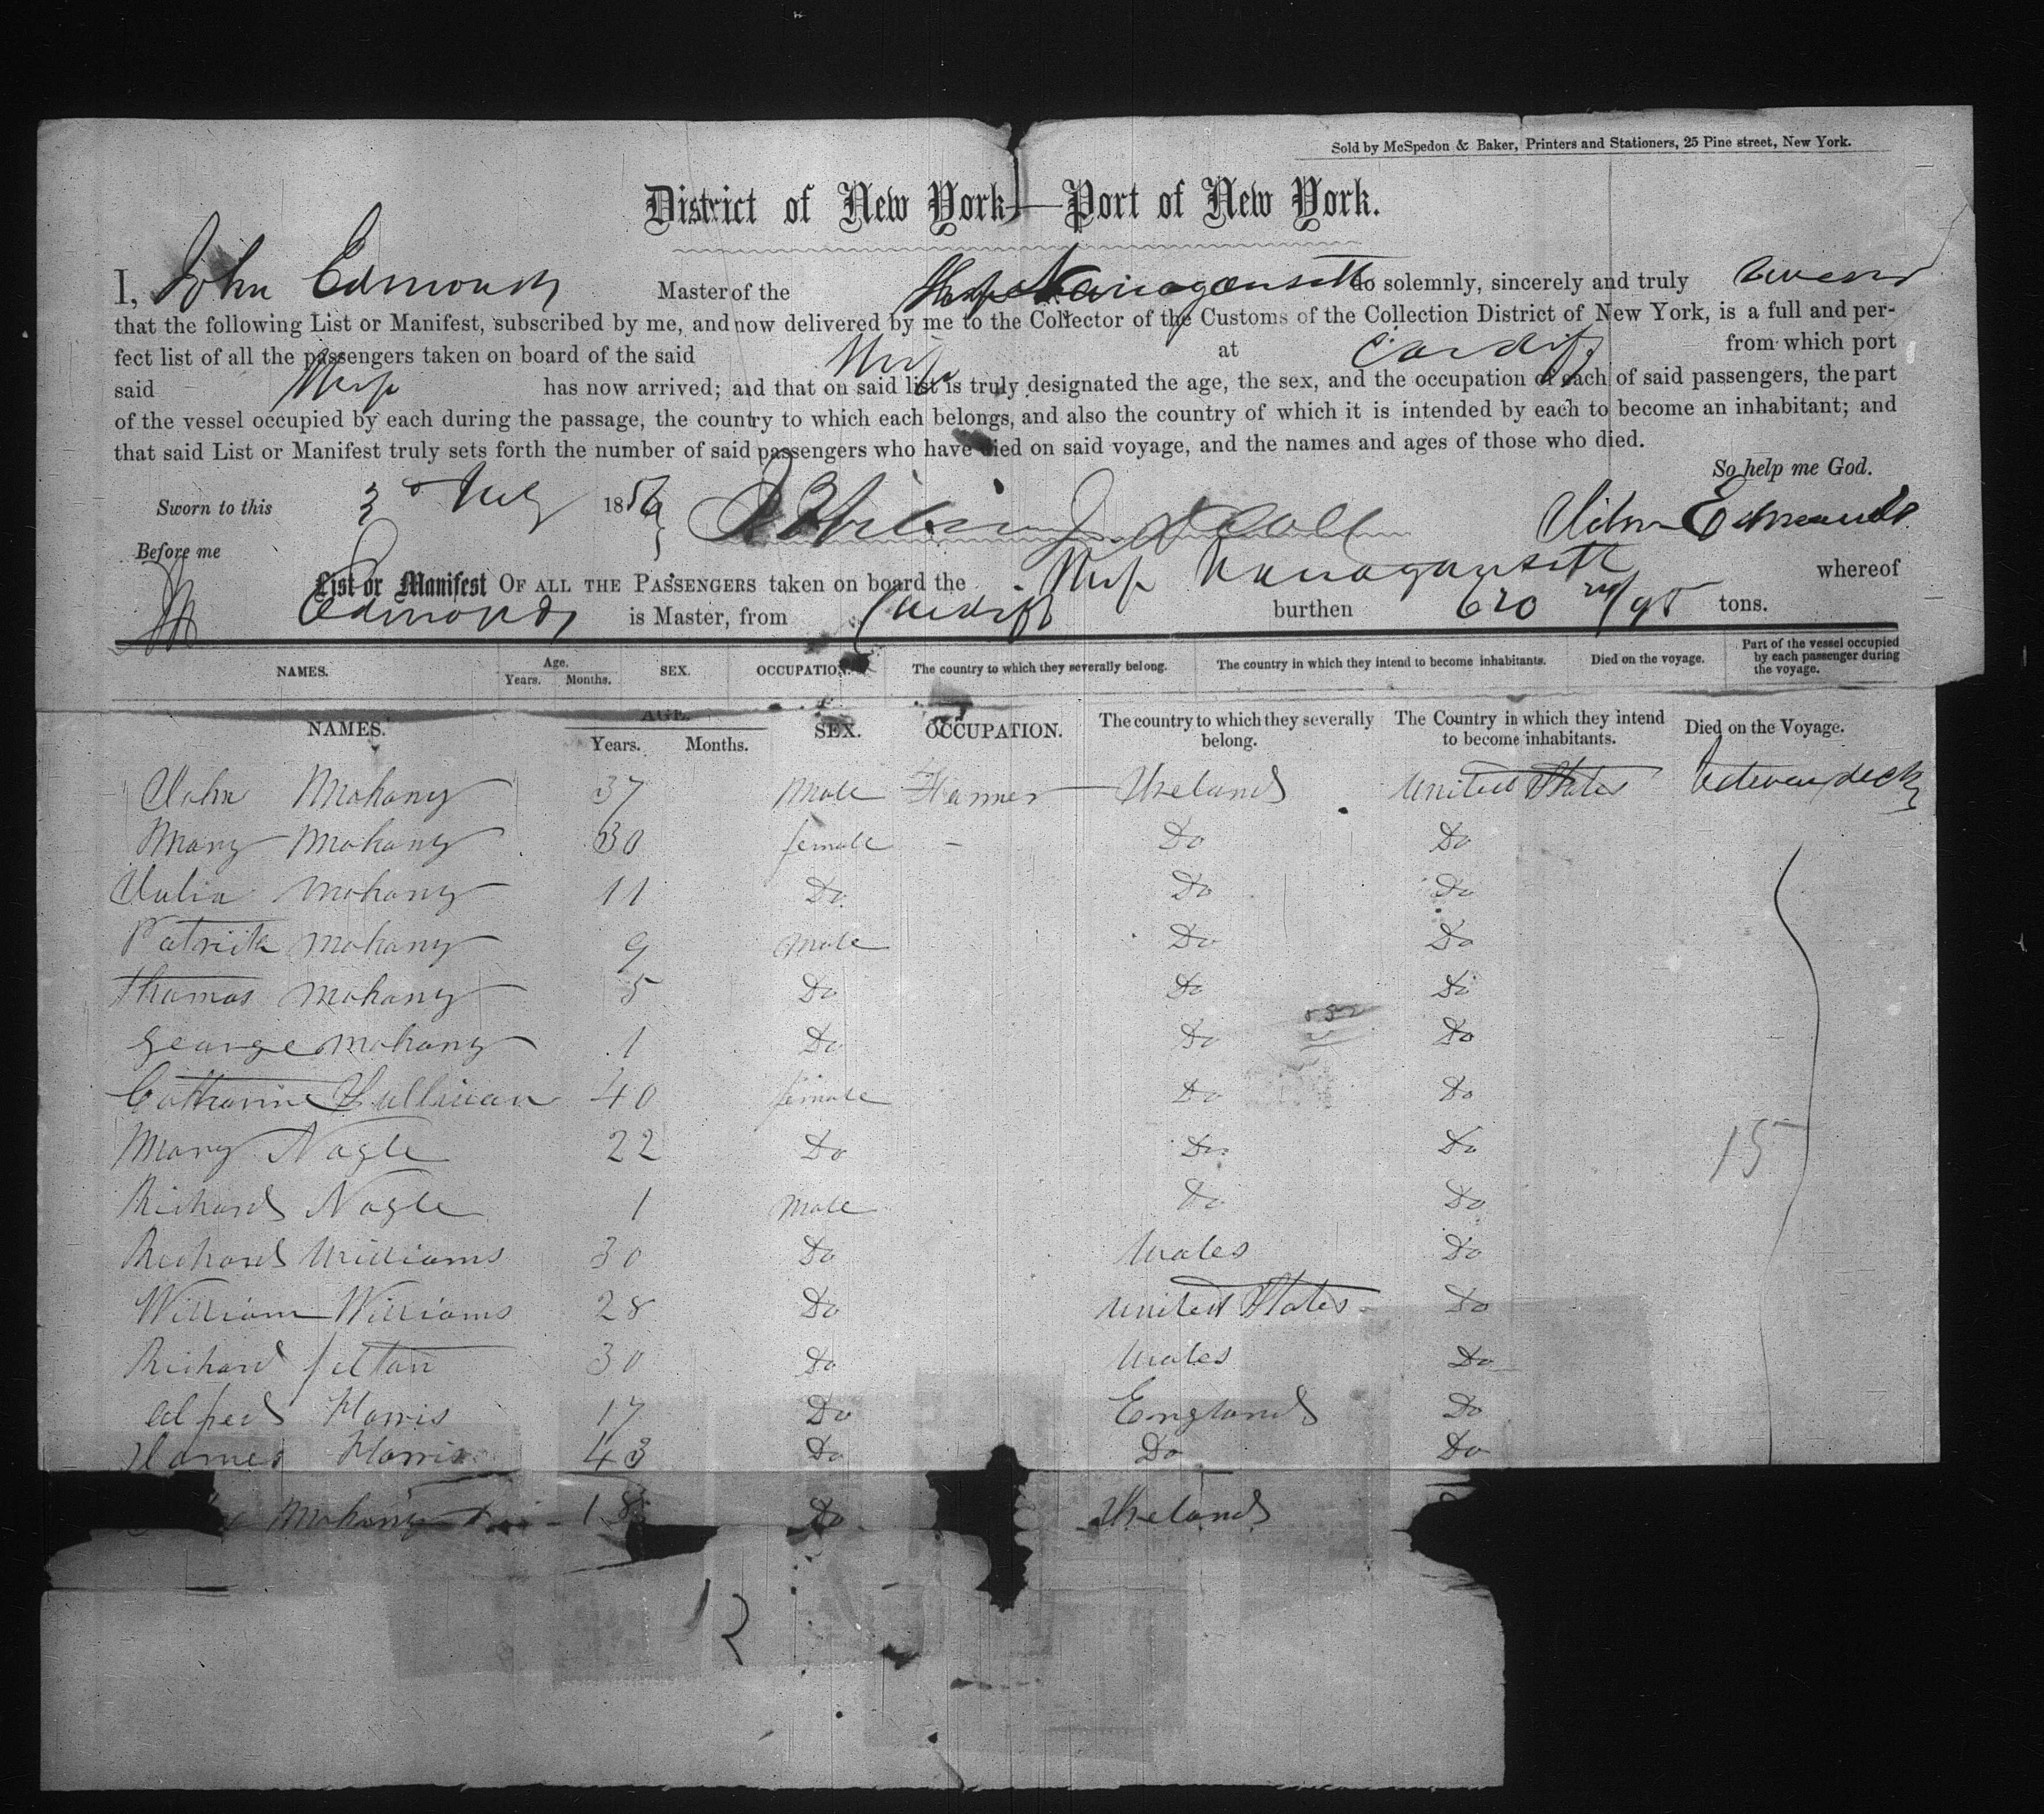 Sold by McSpedon & Baker, Printers and Stationers, 25 Pine street, New York.
District of New York—Port of New York.
I, John Edmonds Master of the Ship Narragansett do solemnly, sincerely and truly swear
that the following List or Manifest, subscribed by me, and now delivered by me to the Collector of the Customs of the Collection District of New York, is a full and per-
fect list of all the passengers taken on board of the said Ship at Cardiff from which port
said Ship has now arrived; and that on said list is truly designated the age, the sex, and the occupation of each of said passengers, the part
of the vessel occupied by each during the passage, the country to which each belongs, and also the country of which it is intended by each to become an inhabitant; and
that said List or Manifest truly sets forth the number of said passengers who have died on said voyage, and the names and ages of those who died.
So help me God.
Sworn to this 3d July 1856 John Edmonds
Before me
List or Manifest OF ALL THE PASSENGERS taken on board the Ship Narragansett whereof
Edmonds is Master, from Cardiff burthen 620 /95 tons.
NAMES. Age. Years. Months. SEX. OCCUPATION. The country to which they severally belong. The country in which they intend to become inhabitants. Died on the voyage. Part of the vessel occupied by each passenger during the voyage.
NAMES. AGE. Years. Months. SEX. OCCUPATION. The country to which they severally belong. The Country in which they intend to become inhabitants. Died on the Voyage.
John Mohany 37 Male Farmer Ireland United States between decks
Mary Mohany 30 female - Do Do
Julia Mohany 11 Do Do Do
Patrick Mohany 9 Male Do Do
Thomas Mohany 5 Do Do Do
George Mohany 1 Do Do Do
Catharine Sullivan 40 female Do Do
Mary Nagle 22 Do Do Do
15
Richard Nagle 1 Male Do Do
Richard Williams 30 Do Wales Do
William Williams 28 Do United States Do
Richard 30 Do Wales Do
Alfred Harris 17 Do England Do
James Harris 43 Do Do Do
Mohany 18 Do Ireland
12